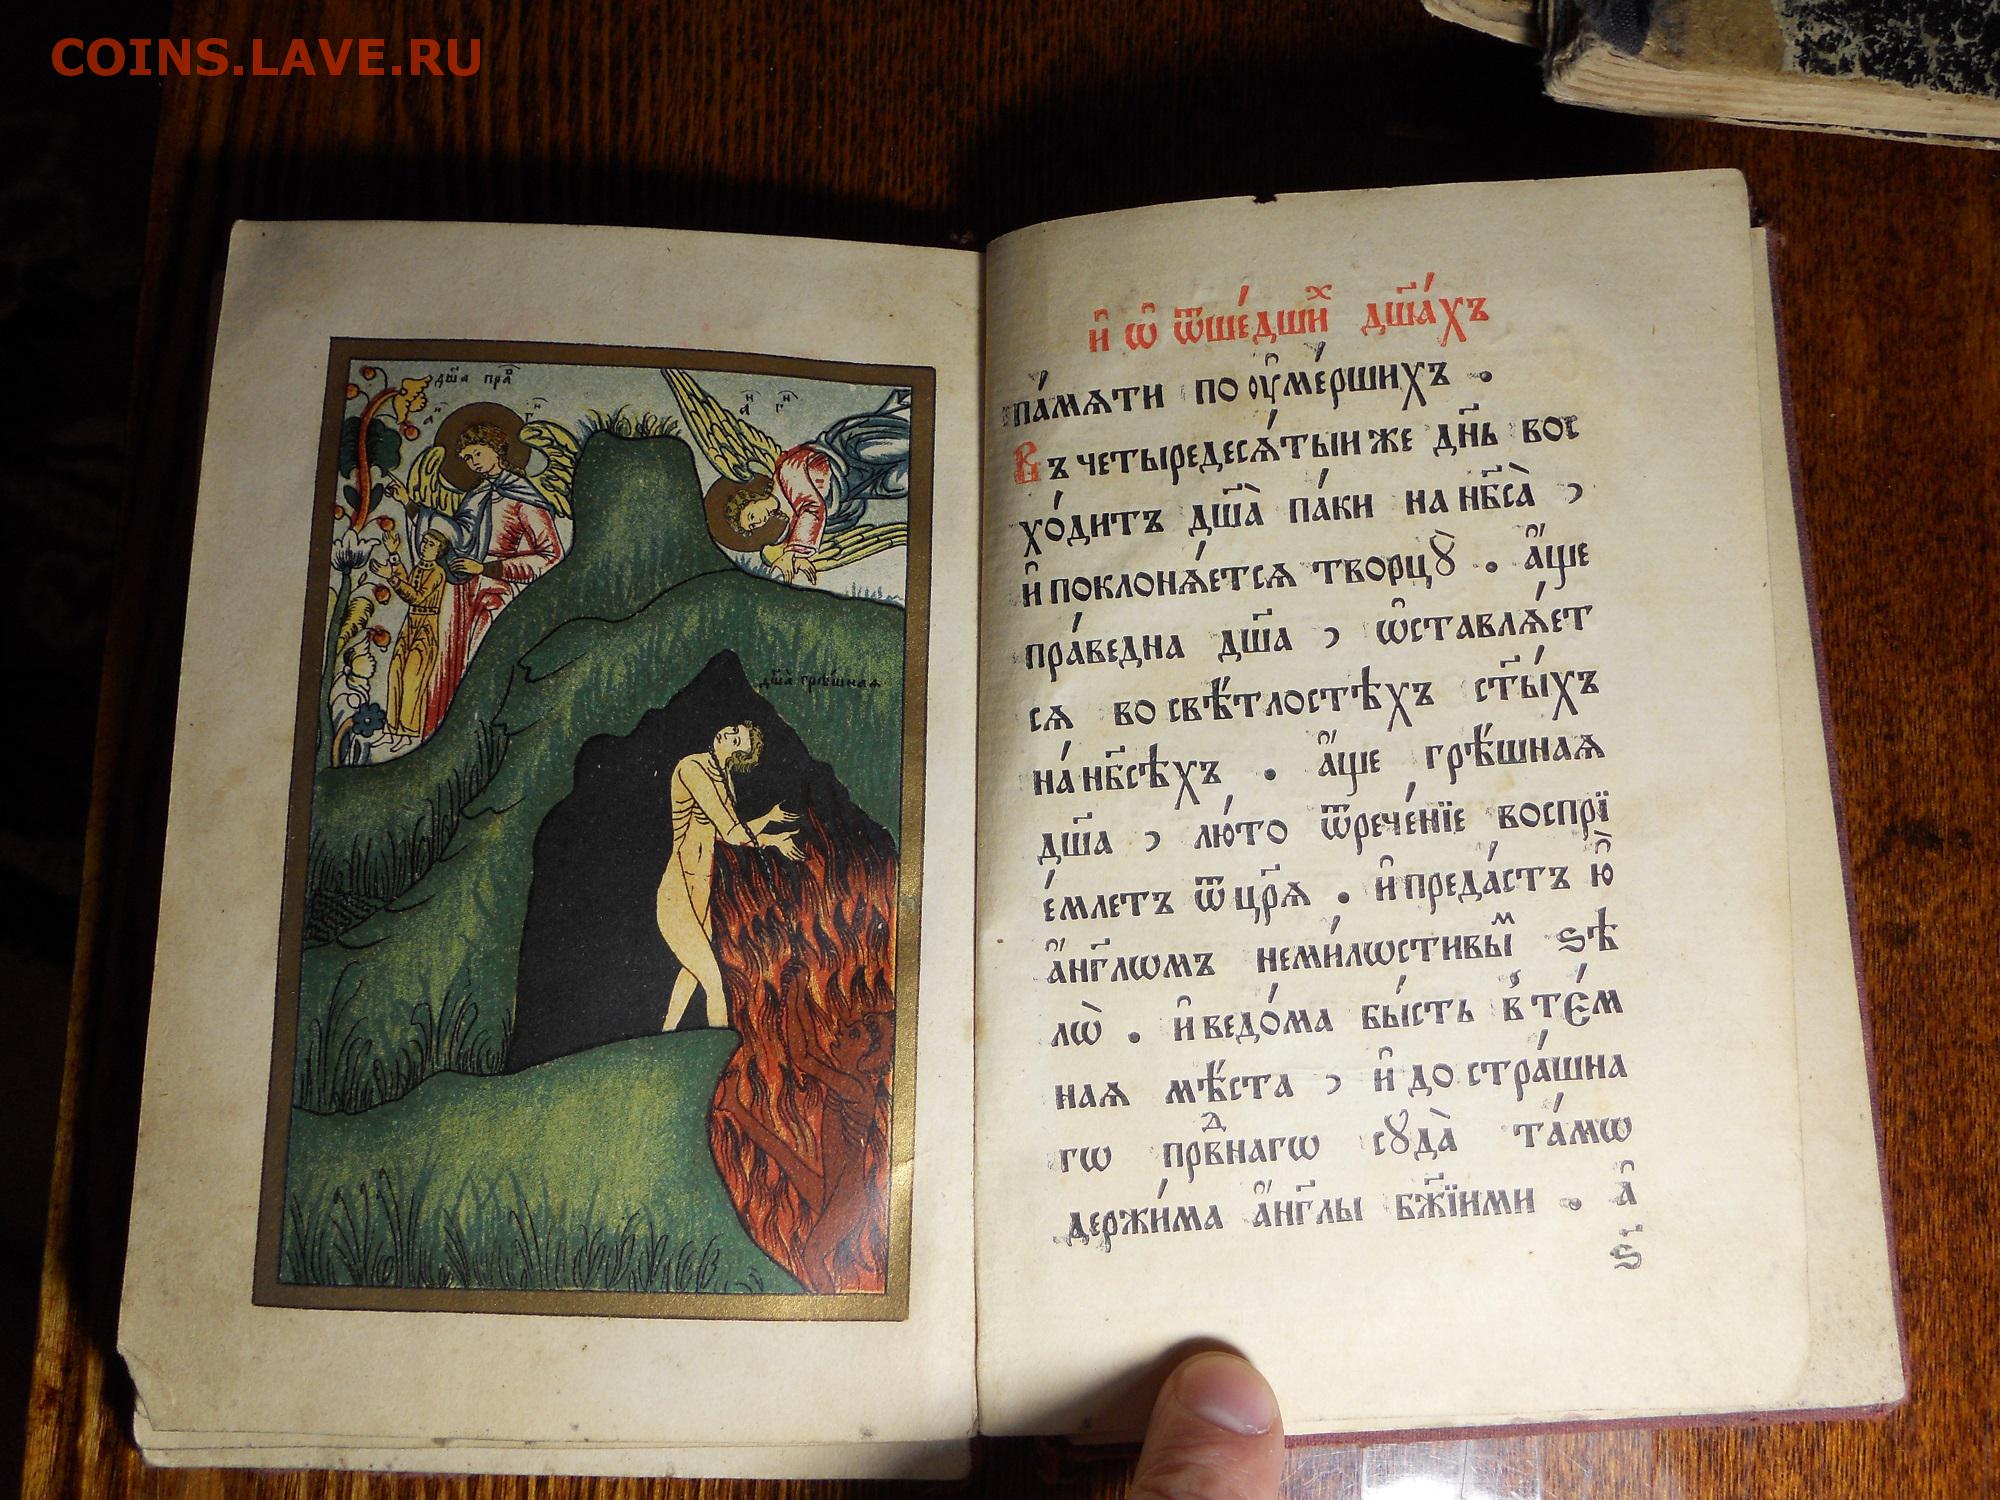 COINS.LAVE.RU
дш҃а пра
а҃г҃
а҃г҃
дш҃а грѣшная
И҆ ѡ҆ ѿше́дшиⷯ дш҃а́хъ
па́мѧти по ᲂу҆ме́ршихъ .
Въ четыредесѧ́тыи же дн҃ь вос
хо́дитъ дш҃а̀ па́ки на нб҃са̀ ,
и҆ поклонѧ́етсѧ творцꙋ̀ . а҆́ще
пра́ведна дш҃а , ѡ҆ставлѧ́ет
сѧ во свѣ́тлостѣхъ ст҃ы́хъ
на́ нб҃сѣхъ . а҆́ще грѣ́шнаѧ
дш҃а , лю́то ѿрече́нїе воспрї
е́млетъ ѿ цр҃ѧ . и҆ преда́стъ ю҆̀
а҆́нг҃лѡмъ неми́лѡстивыⷨ ѕѣ
лѡ̀ . и҆ ведо́ма бы́сть в те́м
наѧ мѣ́ста , и҆ до стра́шна
гѡ прⷣвнагѡ сꙋда̀ та́мѡ
держи́ма а҆́нг҃лы бж҃їими . а҆
ѕ҃